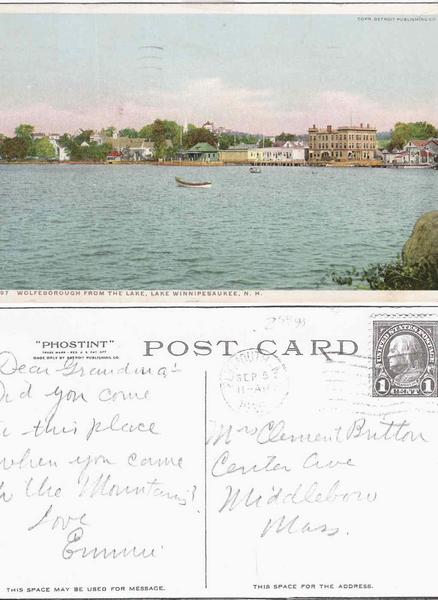 COPR. DETROIT PUBLISHING CO.
97 WOLFEBOROUGH FROM THE LAKE, LAKE WINNIPESAUKEE, N. H.
"PHOSTINT"
TRADE MARK - REG. U. S. PAT. OFF.
MADE ONLY BY DETROIT PUBLISHING CO.
POST CARD
SEP 5
11-AM
UNITED STATES POSTAGE
1 CENT 1
Dear Grandma-
Did you come
to this place
when you came
to the Mountains?
Love
Emmie
Mrs Clement Britton
Center Ave
Middleboro
Mass.
THIS SPACE MAY BE USED FOR MESSAGE.
THIS SPACE FOR THE ADDRESS.